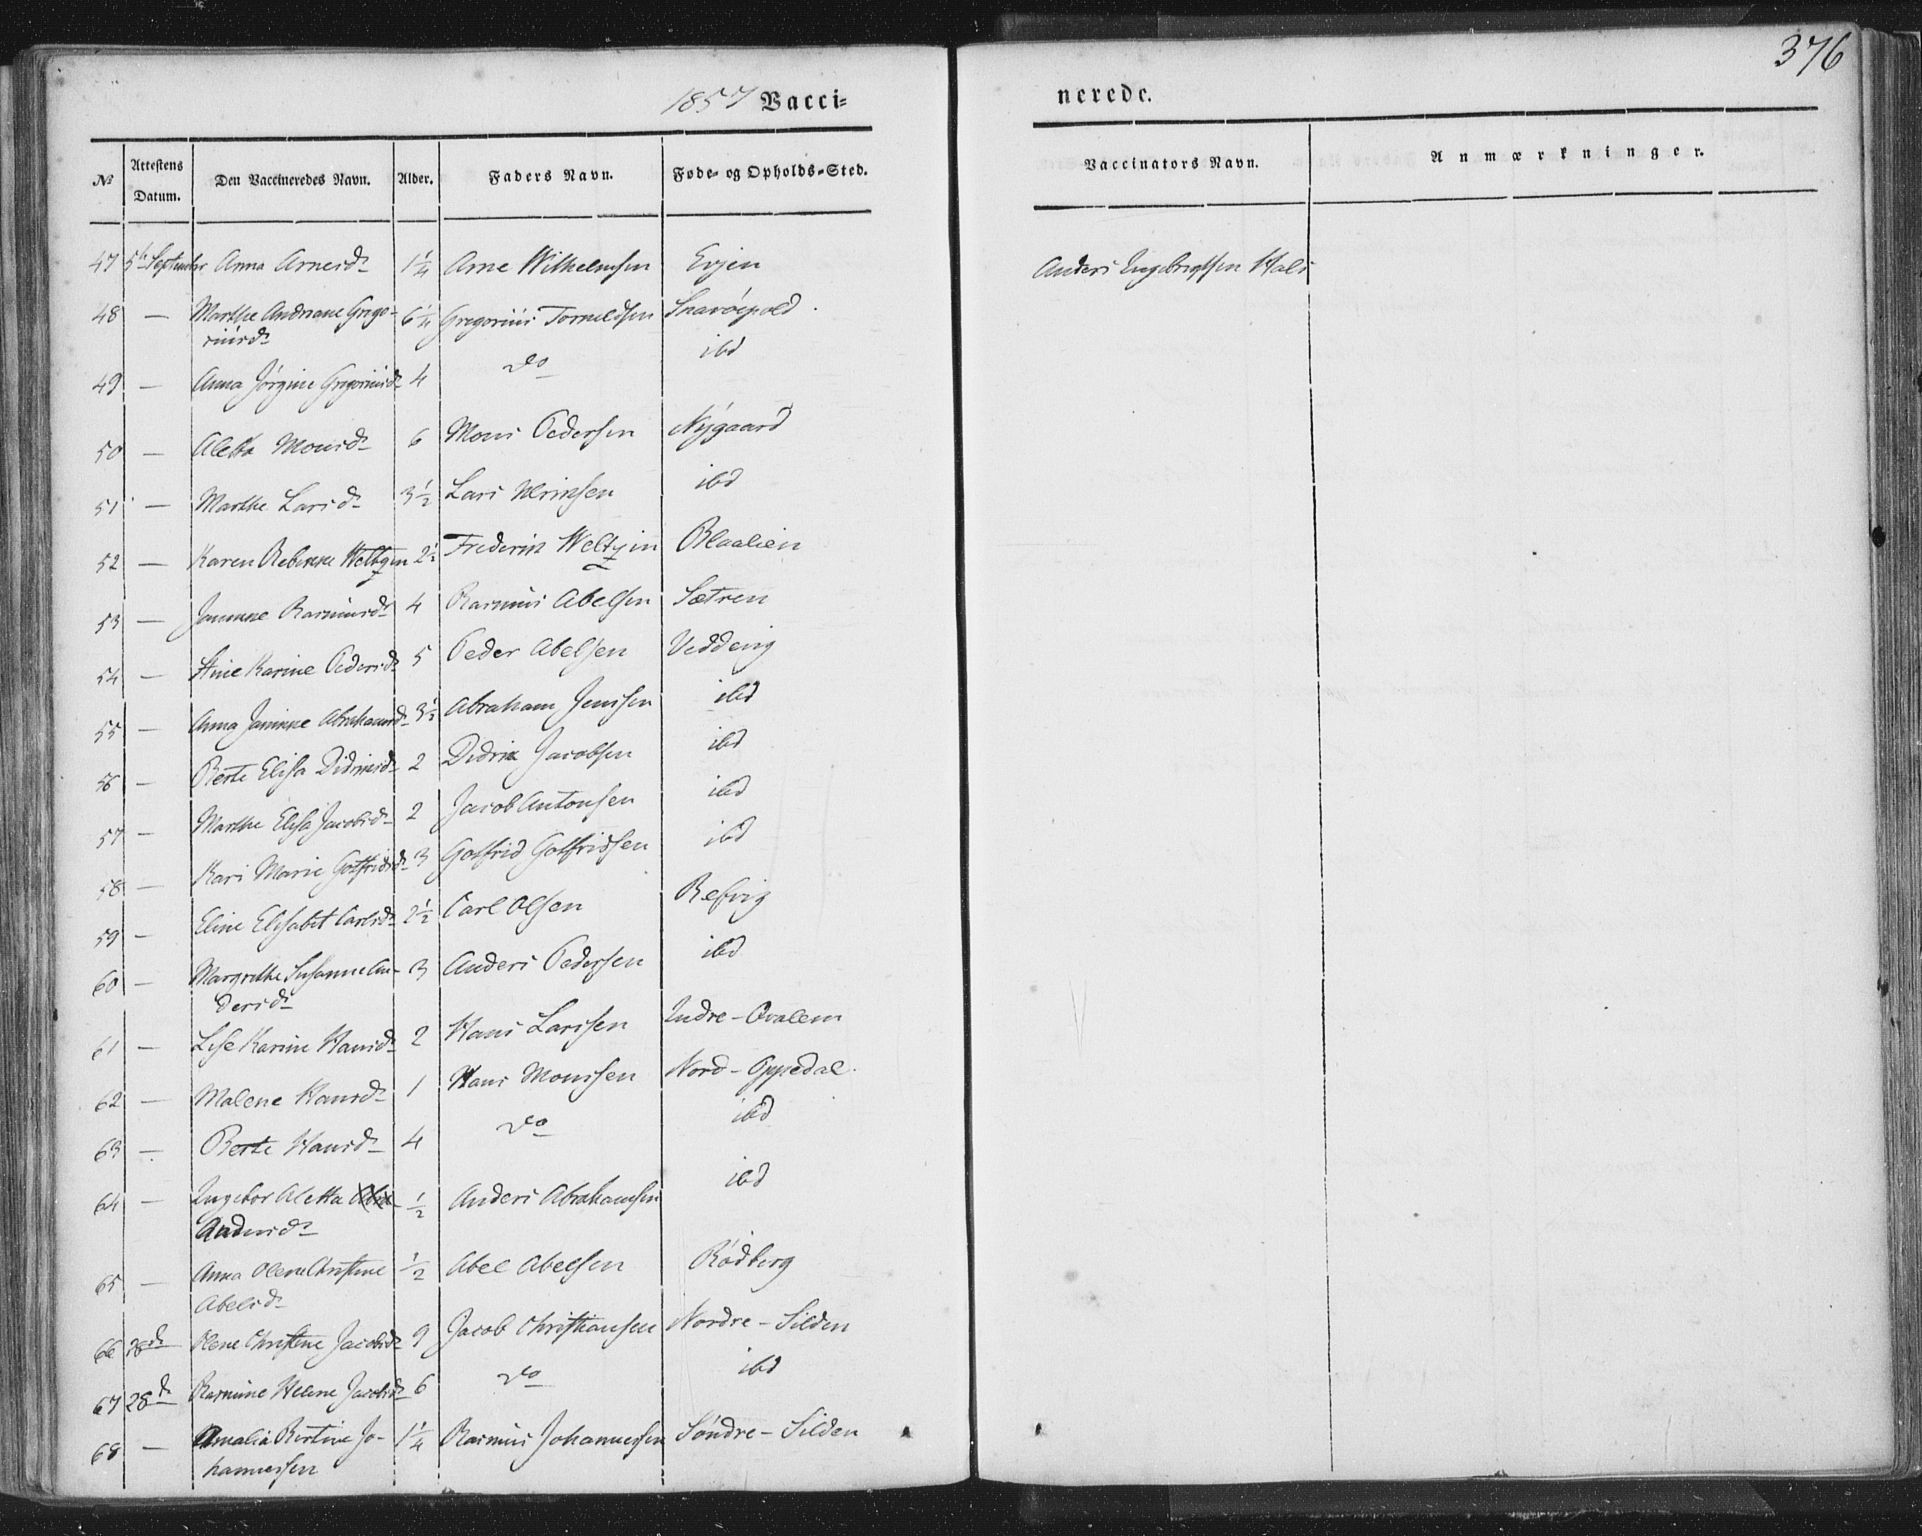 376
1857 Vacci=
nerede.
№ Attestens Datum. Den Vaccineredes Navn. Alder. Faders Navn. Føde- og Opholds-Sted.
Vaccinators Navn. Anmærkninger.
47 5te September Anna Arnesdr 1¼ Arne Wilhelmsen Evjen Anders Engebregtsen Hals
48 — Marthe Andreane Grego-
riusdr 6¼ Gregorius Torneldsen
49 — Anna Jørgine Gregoriusdr 4 do ibd
50 — Aletta Monsdr 6 Mons Pedersen Nygaard
51 — Marthe Larsdr 3½ Lars Ulriksen ibd
52 — Karen Rebekke Weltzin 2½ Frederik Weltzin Blaalien
53 — Jannike Rasmusdr 4 Rasmus Abelsen Sætren
54 — Stine Karine Pedersdr 5 Peder Abelsen Vedderig
55 — Anna Jannike Abrahamsdr 3½ Abraham Jenssen ibd
56 — Berte Elisa Didriksdr 2 Didrik Jacobsen ibd
57 — Marthe Elisa Jacobsdr 2 Jacob Antonsen ibd
58 — Kari Marie Gotfridsdr 3 Gotfrid Gotfridsen ibd
59 — Eline Elisabet Carlsdr 2½ Carl Olsen Refvig
60 — Margrethe Susanne An-
dersdr 3 Anders Pedersen ibd
61 — Lise Karine Hansdr 2 Hans Larssen Indre-Qvalem
62 — Malene Hansdr 1 Hans Monssen Nord-Oppedal
63 — Berte Hansdr 4 do ibd
64 — Ingebor Aletta Abra-
Andersdr ½ Anders Abrahamsen ibd
65 — Anna Olene Christine
Abelsdr ½ Abel Abelsen Rødberg
66 28d Olene Christine Jacobsdr 9 Jacob Christiansen Nordre-Silden
67 28d Rasmine Helene Jacobsdr 6 do ibd
68 — Amalia Bertine Jo-
hannessen 1¼ Rasmus Johannessen Søndre-Silden